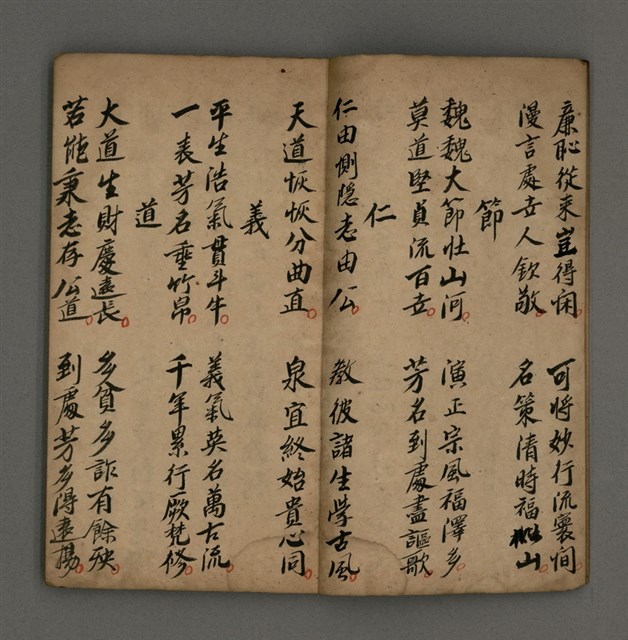 廉恥從來豈得閑 可將妙行流寰間
漫言處立人欽敬 名策清時福 山
節
魏魏大節壯山河 演正宗風福澤多
莫道堅貞流百立 芳名到處盡謳歌
仁
仁由惻隱志由公 教彼諸生學古風
天道恢恢分曲直 泉宜終始貴心同
義
平生浩氣貫斗牛 義氣英名萬古流
一表芳名垂竹帛 千年累行厥梵修
道
大道生財慶遠長 多貧多詐有餘殃
若能秉志存公道 到處芳多得遠揚